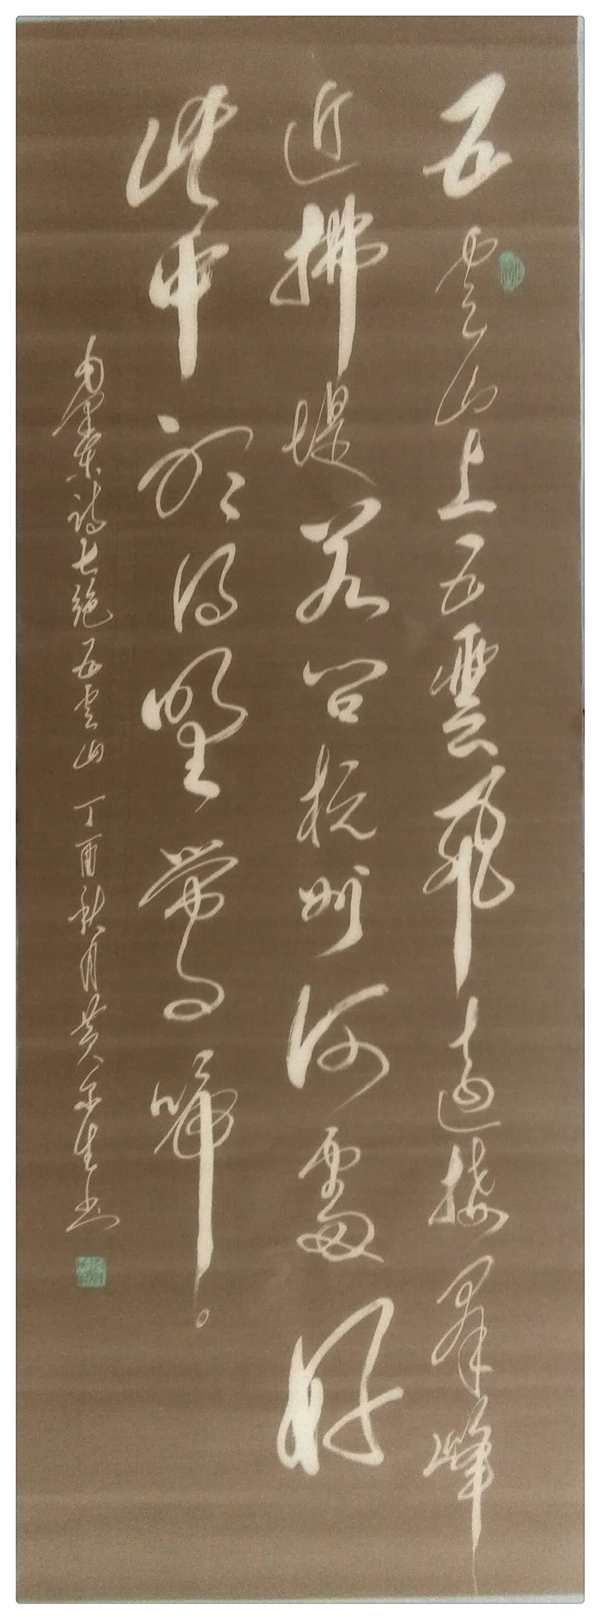 五云山上五雲飛遠接群峰
近拂堤若问杭州何處好
此中听得野莺啼
毛澤东詩七絕五云山丁酉秋月黄尔生书